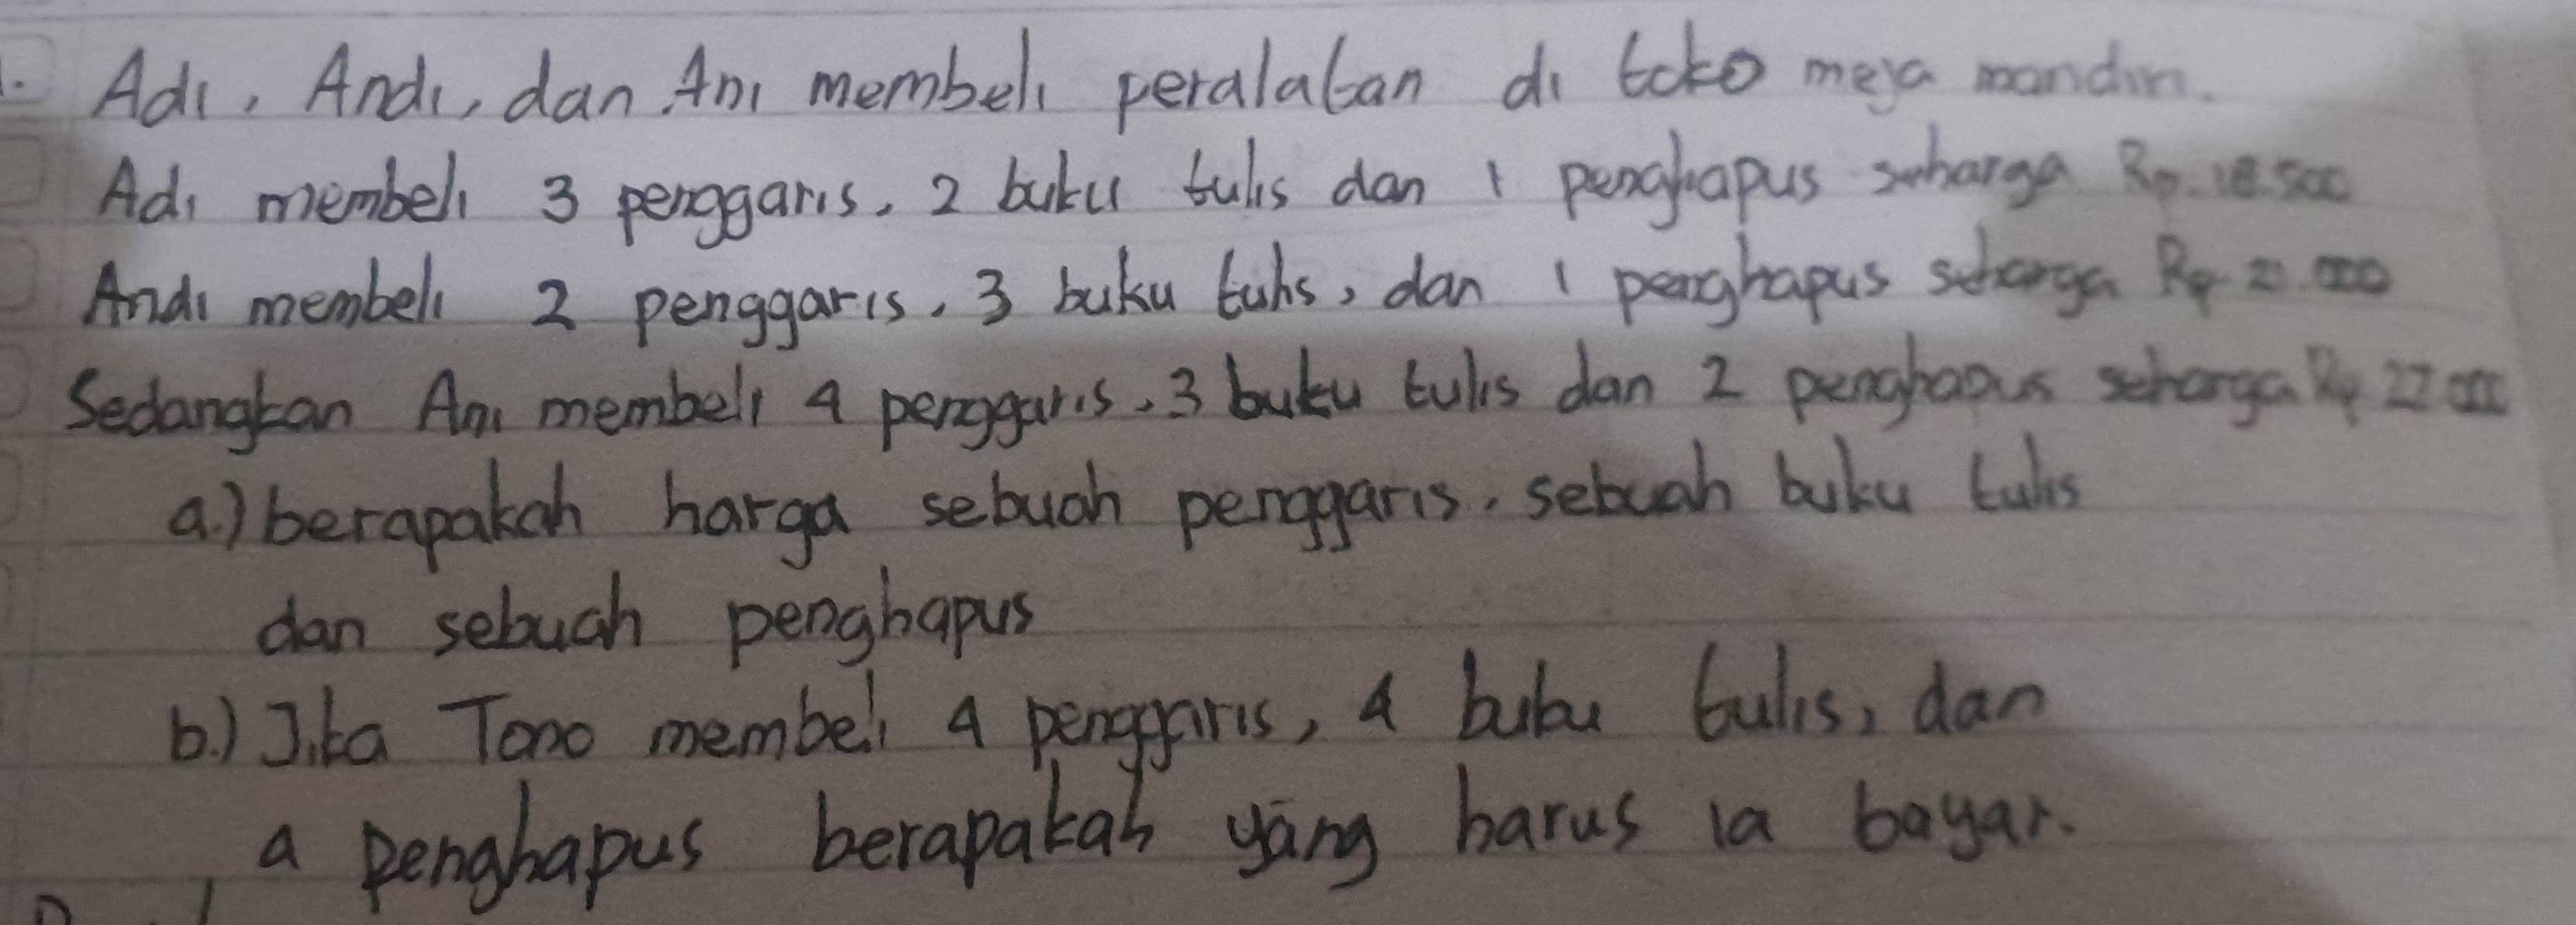 1. Adi, Andi, dan Ani membeli peralatan di toko meja mandiri.
Adi membeli 3 penggaris, 2 buku tulis dan 1 penghapus seharga Rp. 18.500
Andi membeli 2 penggaris, 3 buku tulis, dan 1 penghapus seharga Rp.
Sedangkan Ani membeli 4 penggaris, 3 buku tulis dan 2 penghapus seharga Rp
a.) berapakah harga sebuah penggaris, sebuah buku tulis
dan sebuah penghapus
b.) Jika Tono membeli 4 penggaris, 4 buku tulis, dan
4 penghapus berapakah yang harus ia bayar.